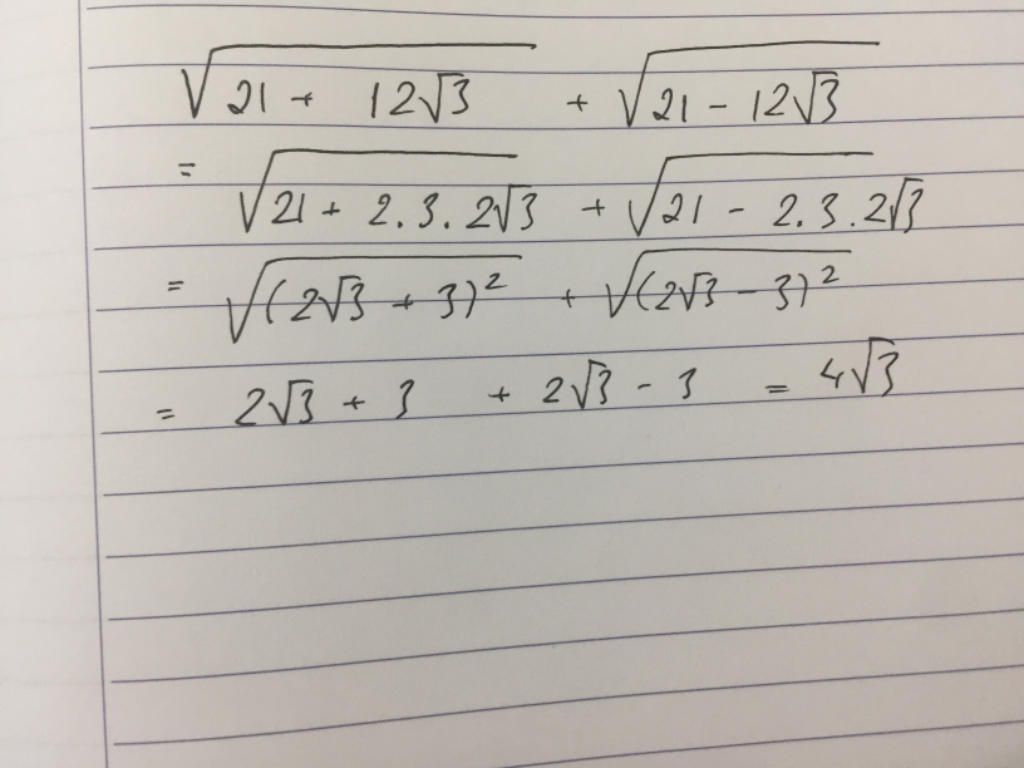 √(21 + 12√3) + √(21 - 12√3)
= √(21 + 2.3.2√3) + √(21 - 2.3.2√3)
= √((2√3 + 3)²) + √((2√3 - 3)²)
= 2√3 + 3 + 2√3 - 3 = 4√3